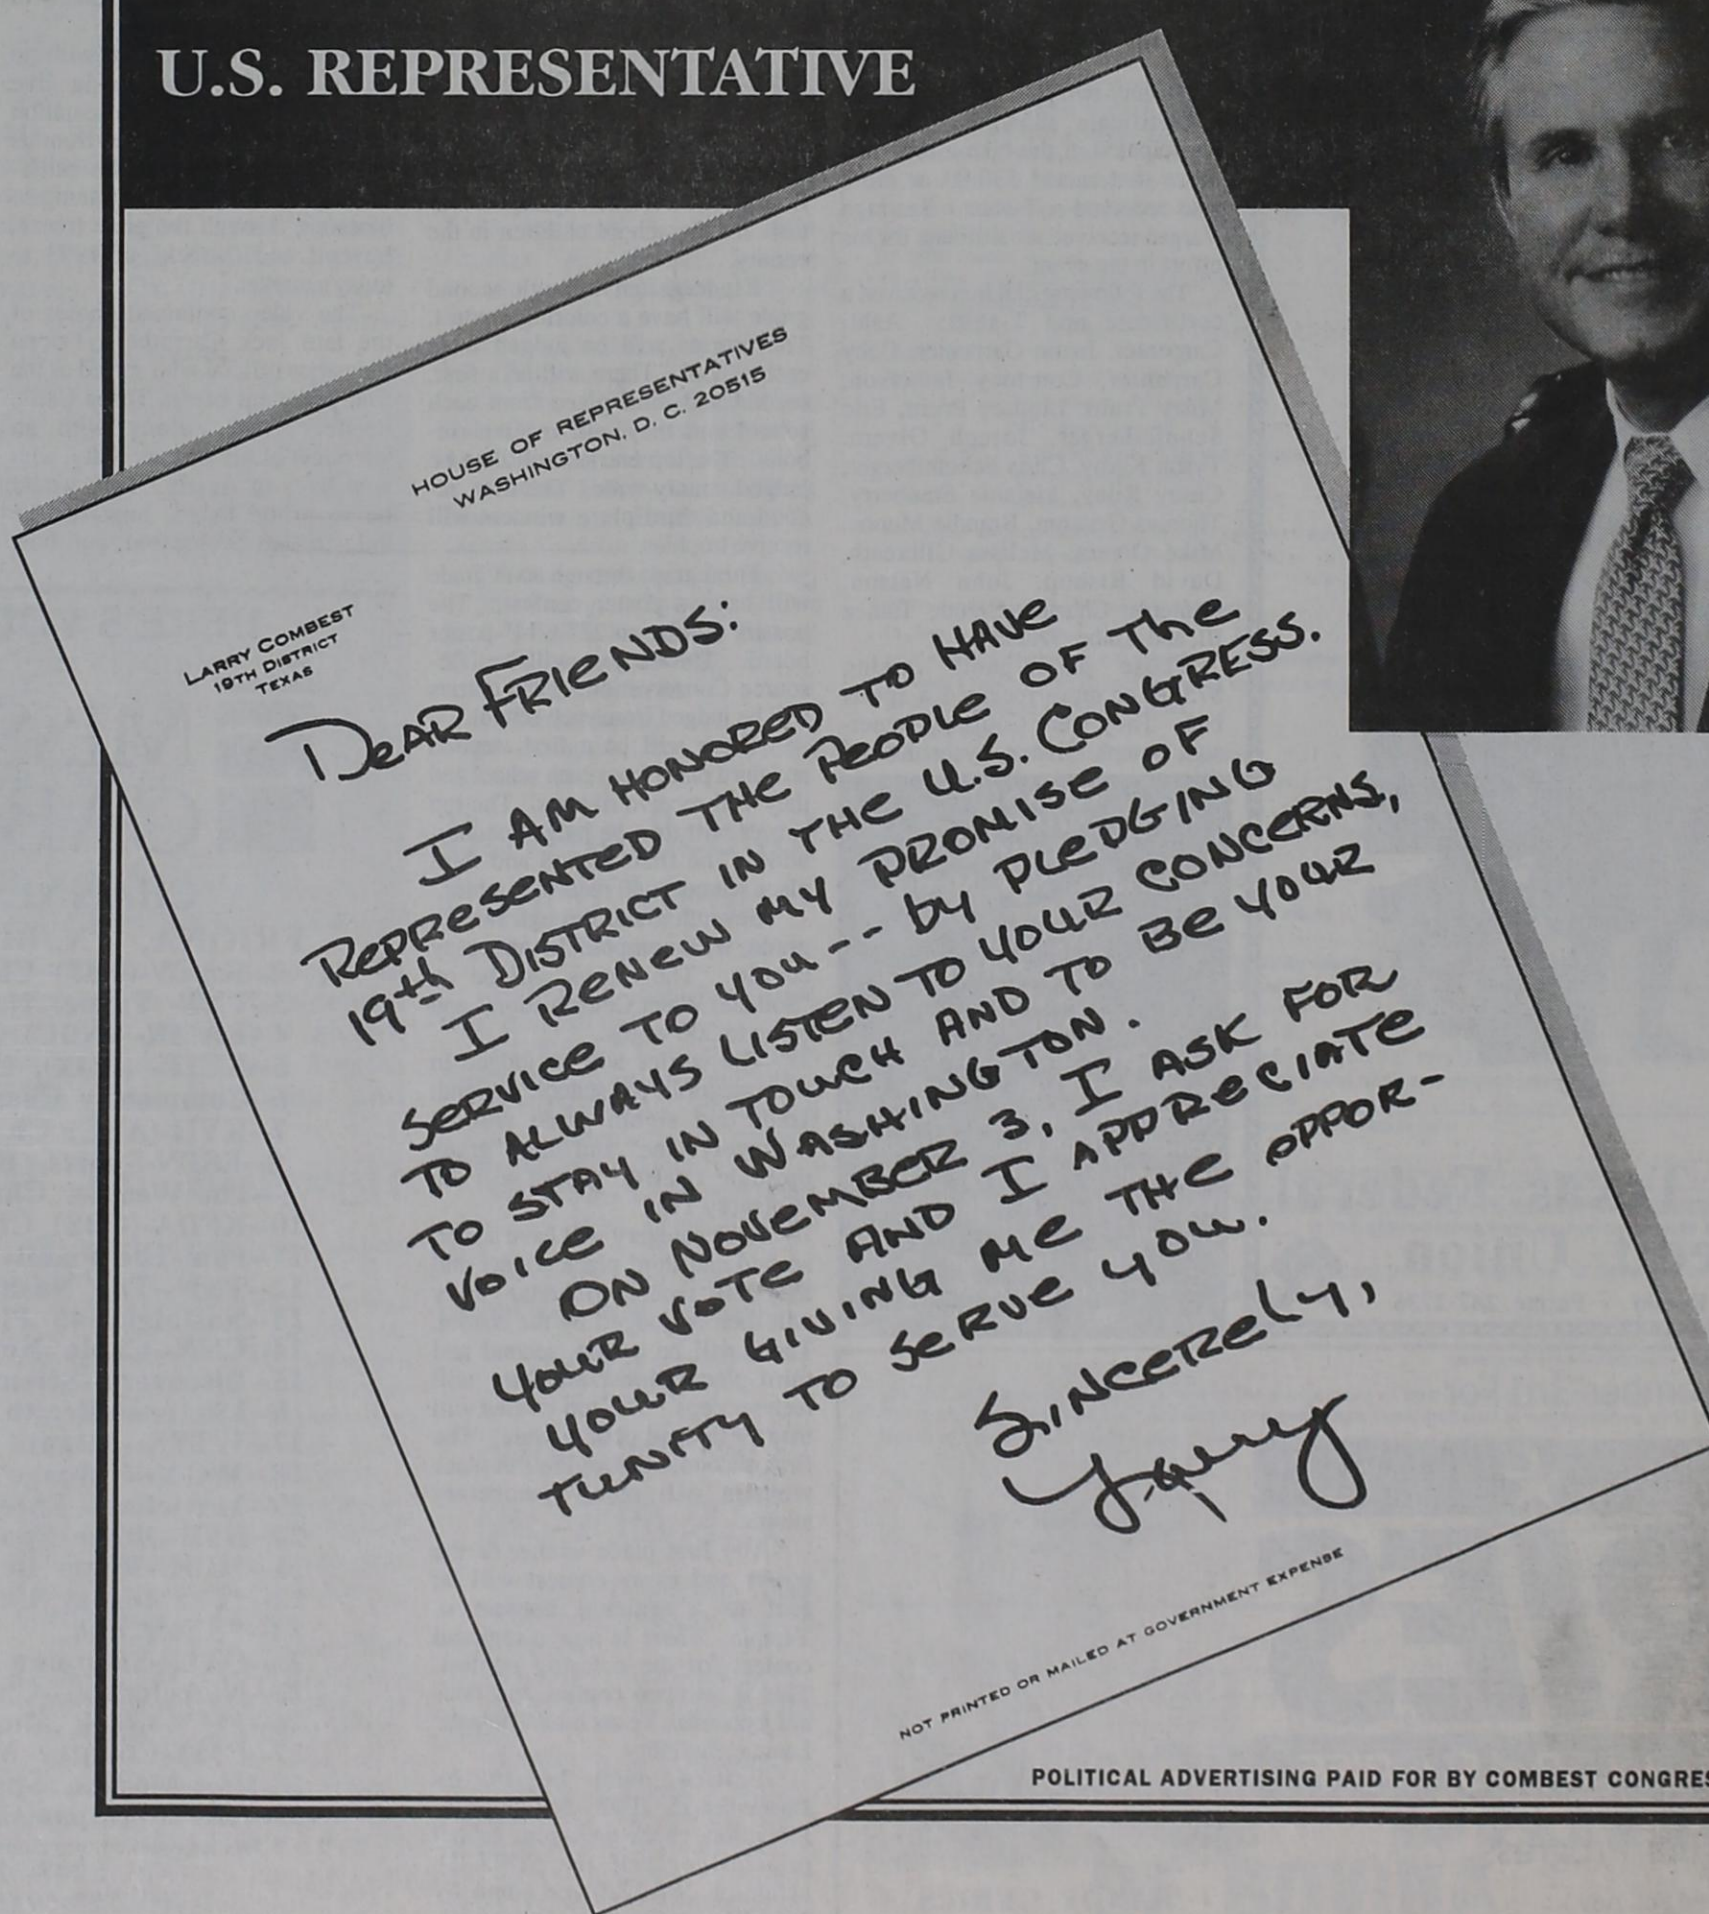 U.S. REPRESENTATIVE
HOUSE OF REPRESENTATIVES
WASHINGTON, D. C. 20515
LARRY COMBEST
19TH DISTRICT
TEXAS
DEAR FRIENDS:
I AM HONORED TO HAVE
REPRESENTED THE PEOPLE OF THE
19th DISTRICT IN THE U.S. CONGRESS.
I RENEW MY PROMISE OF
SERVICE TO YOU -- by PLEDGING
TO ALWAYS LISTEN TO YOUR CONCERNS,
TO STAY IN TOUCH AND TO BE YOUR
VOICE IN WASHINGTON.
ON NOVEMBER 3, I ASK FOR
YOUR VOTE AND I APPRECIATE
YOUR GIVING ME THE OPPOR-
TUNITY TO SERVE YOU.
SINCERELY,
Larry
NOT PRINTED OR MAILED AT GOVERNMENT EXPENSE
POLITICAL ADVERTISING PAID FOR BY COMBEST CONGRES